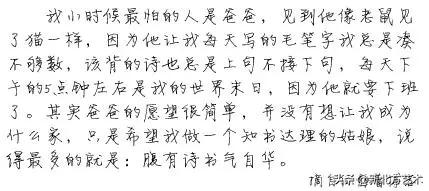 我小时候最怕的人是爸爸，见到他像老鼠见
了猫一样，因为他让我每天写的毛笔字我总是凑
不够数，该背的诗也总是上句不接下句，每天下
午的5点钟左右是我的世界末日，因为他就要下班
了。其实爸爸的愿望很简单，并没有想让我成为
什么家，只是希望我做一个知书达理的姑娘，说
得最多的就是：腹有诗书气自华。